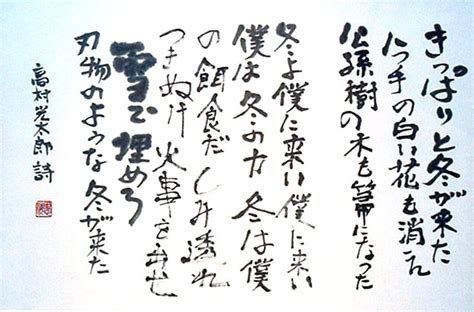 きっぱりと冬が来た
八つ手の白い花も消え
公孫樹の木も箒になった
冬よ僕に来い僕に来い
僕は冬の力 冬は僕
の餌食だ しみ透れ
つきぬけ 火事を出せ
雪で埋めろ
刃物のような冬が来た
高村光太郎 詩